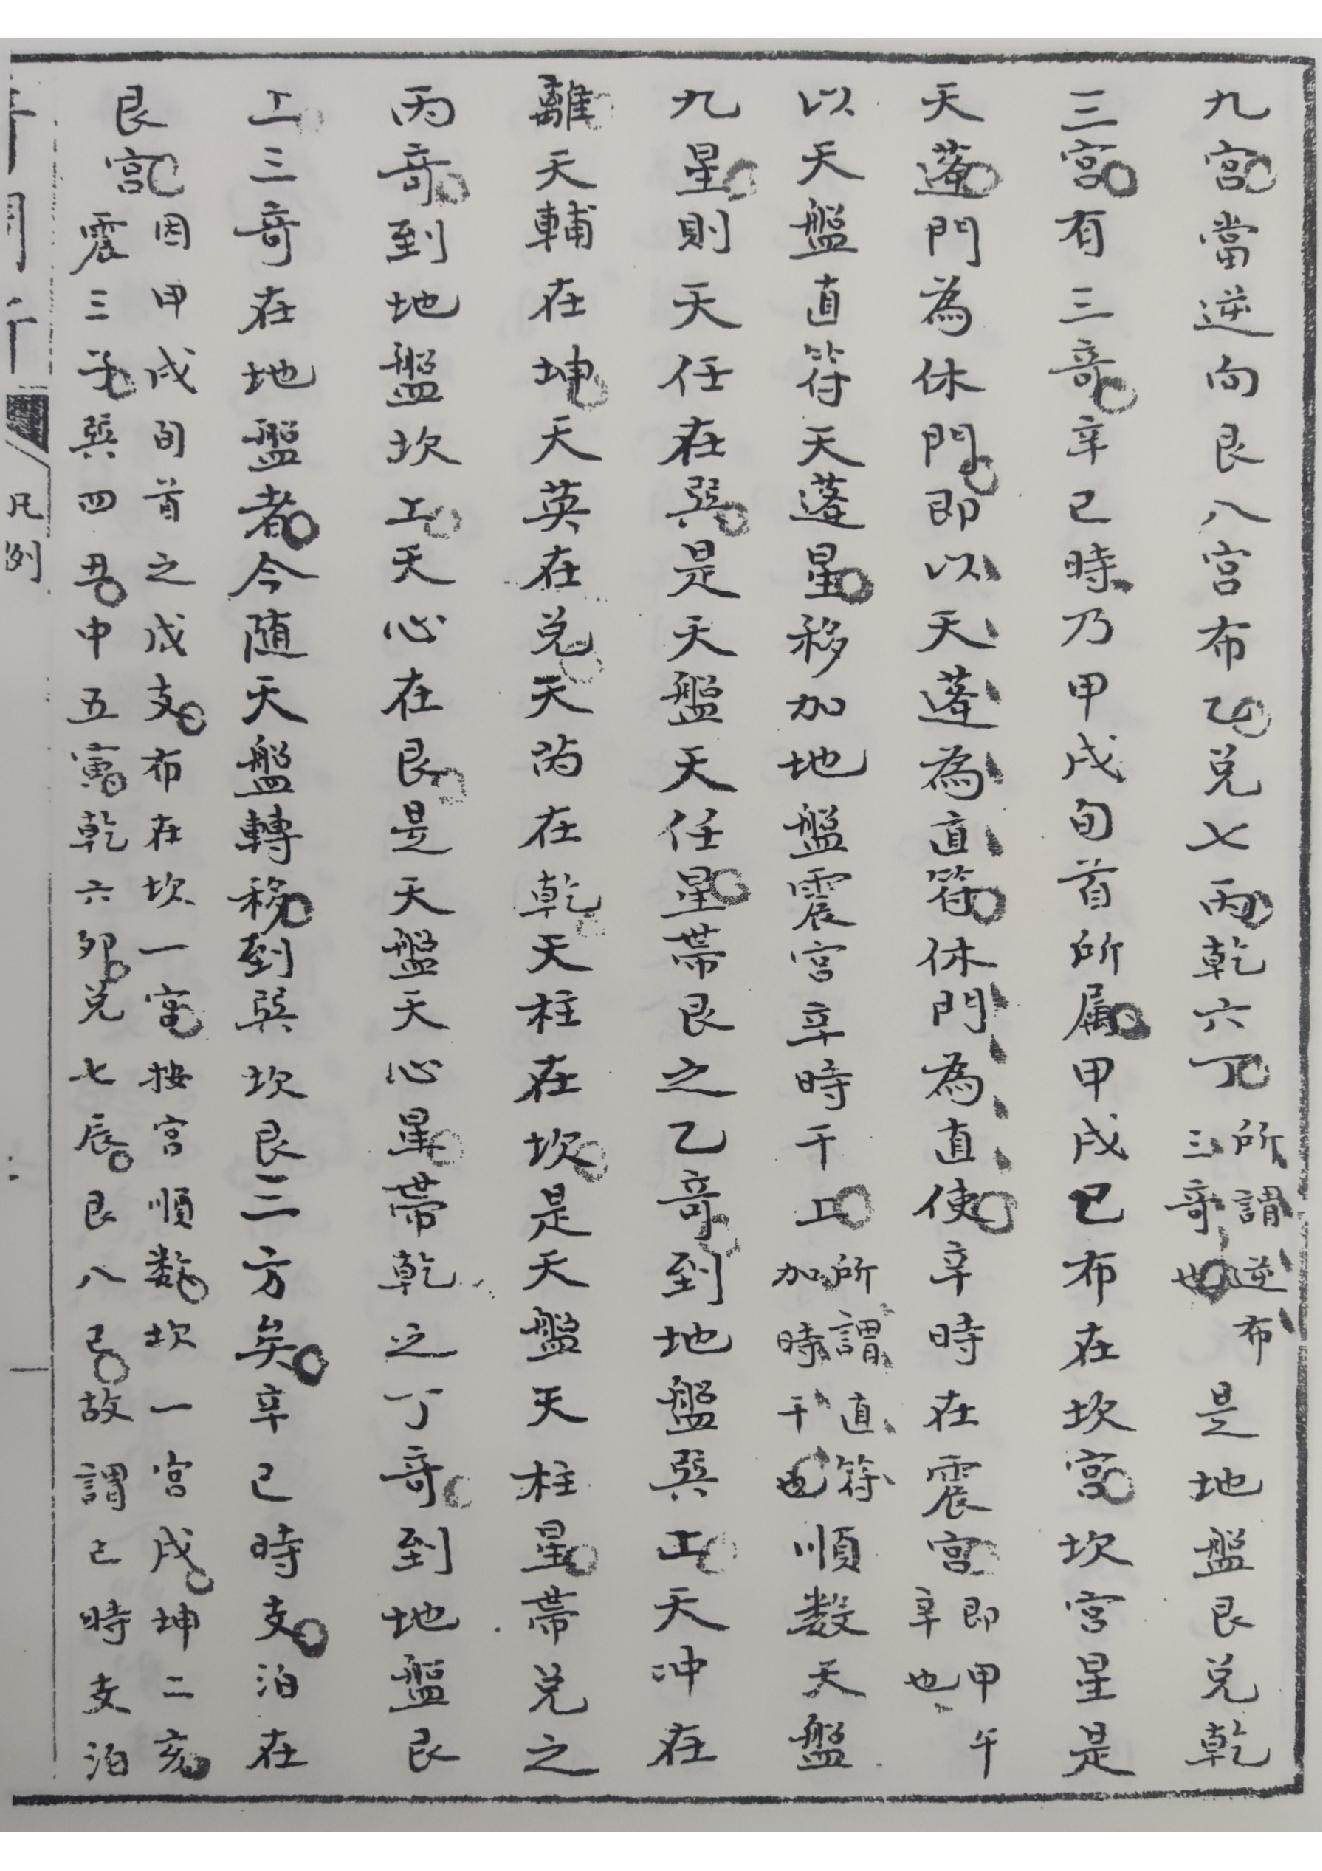 九宮當逆向艮八宮布乙兌七丙乾六丁所謂逆布三奇也是地盤艮兌乾
三宮有三奇辛巳時乃甲戌旬首所属甲戌己布在坎宮坎宮星是
天蓬門為休門即以天蓬為直符休門為直使辛時在震宮即甲午辛也
以天盤直符天蓬星移加地盤震宮辛時干上所謂直符加時干也順数天盤
九星則天任在巽是天盤天任星帶艮之乙奇到地盤巽上天冲在
離天輔在坤天英在兌天芮在乾天柱在坎是天盤天柱星帶兌之
丙奇到地盤坎上天心在艮是天盤天心星帶乾之丁奇到地盤艮
上三奇在地盤者今随天盤轉移到巽坎艮三方矣辛巳時支泊在
艮宮因甲戌旬首之戌支布在坎一宮按宮順数坎一宮戌坤二亥
震三子巽四丑中五寅乾六卯兌七辰艮八巳故謂巳時支泊
凡例